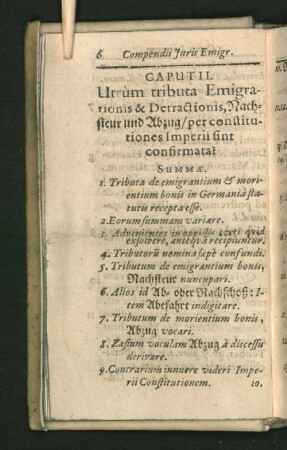 6 Compendii Juris Emigr.
CAPUT II.
Utrùm tributa Emigra-
tionis & Detractionis, Nach-
steur und Abzug/ per constitu-
tiones Imperii sint
confirmata?
SUMMÆ.
1. Tributa de emigrantium & mori-
entium bonis in Germaniâ sta-
tutis recepta esse.
2. Eorum summam variare.
3. Advenientes in oppidis certi quid
exsolvere, anteqvā recipiuntur.
4. Tributorū nomina sæpè confundi.
5. Tributum de emigrantium bonis,
Nachsteur nuncupari.
6. Alios id Ab- oder Nachschoß: I-
tem Abefahrt indigitare.
7. Tributum de morientium bonis,
Abzug vocari.
8. Zasium voculam Abzug à discessu
derivare.
9. Contrarium innuere videri Impe-
rii Constitutionem. 10.